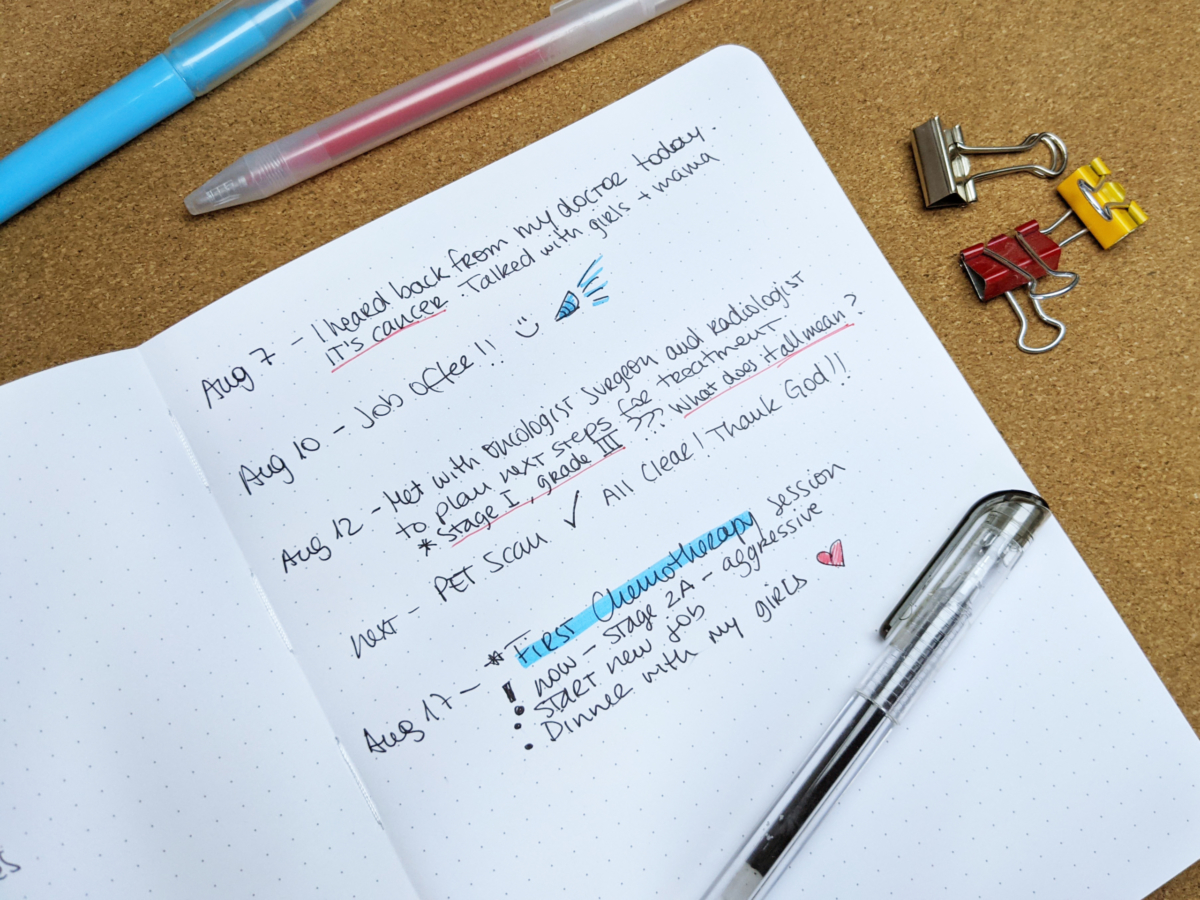 Aug 7 - I heard back from my doctor today.
It's cancer. Talked with girls + mama
Aug 10 - Job offer!! :)
Aug 12 - Met with oncologist surgeon and radiologist
to plan next steps for treatment.
* Stage I, grade III ??? What does it all mean?
next - PET Scan ✓ All Clear! Thank God!!
Aug 17 - * First Chemotherapy session
! now - Stage 2A - aggressive
• Start new job
• Dinner with my girls ♥